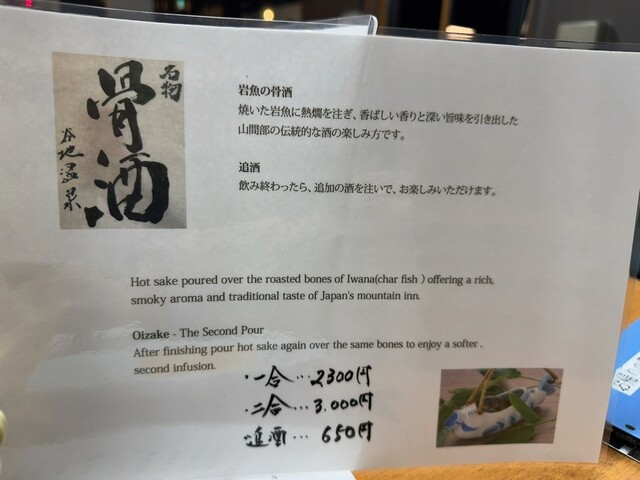 名物
骨酒
谷地温泉
岩魚の骨酒
焼いた岩魚に熱燗を注ぎ、香ばしい香りと深い旨味を引き出した
山間部の伝統的な酒の楽しみ方です。
追酒
飲み終わったら、追加の酒を注いで、お楽しみいただけます。
Hot sake poured over the roasted bones of Iwana(char fish ) offering a rich,
smoky aroma and traditional taste of Japan's mountain inn.
Oizake - The Second Pour
After finishing pour hot sake again over the same bones to enjoy a softer ,
second infusion.
・一合…2300円
・二合…3.000円
追酒…650円